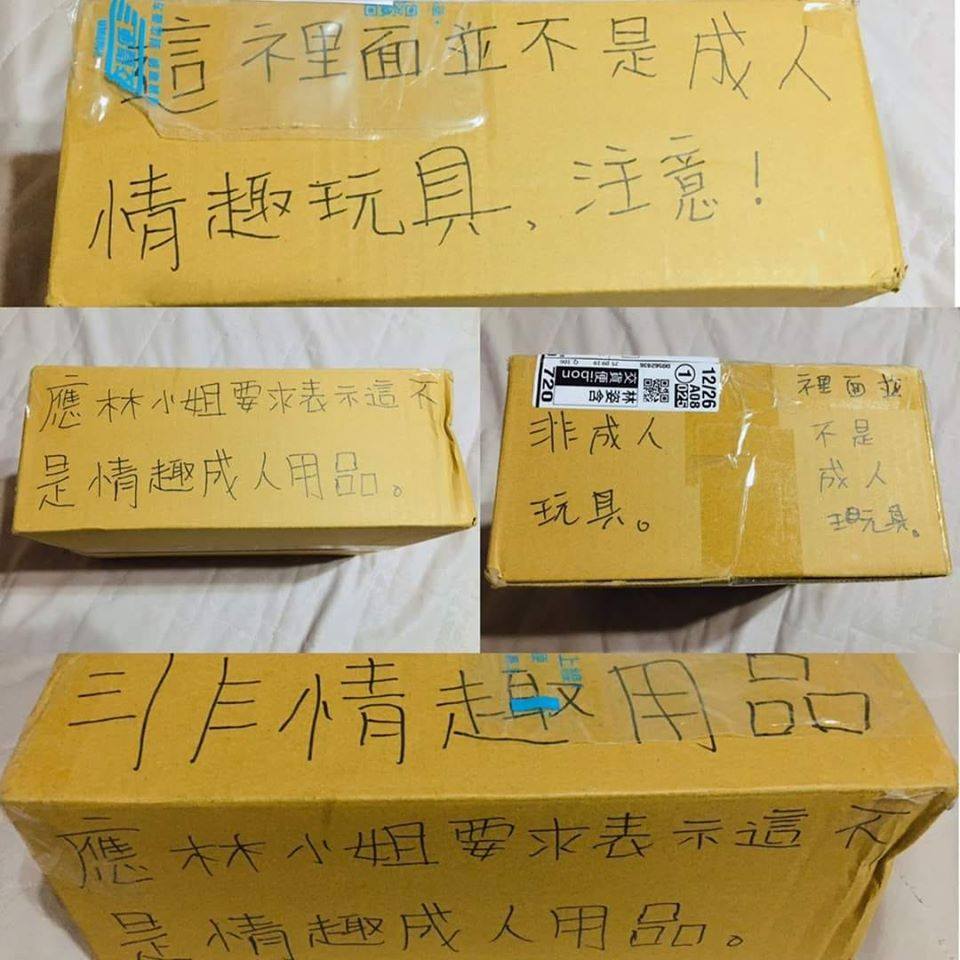 這裡面並不是成人
情趣玩具、注意！
應林小姐要求表示這不
是情趣成人用品。
12/26
A08
1
025
交貨便ibon
林姿含
720
非成人
玩具。
裡面並
不是
成人
玩具。
非情趣用品
應林小姐要求表示這不
是情趣成人用品。